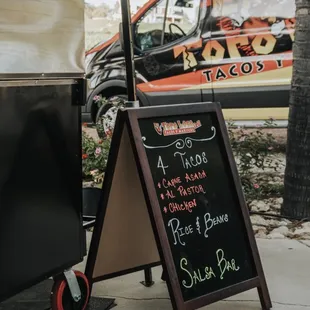 TORO'
TACOS Y
4 Tacos
Carne Asada
Al Pastor
Chicken
Rice & Beans
Salsa Bar